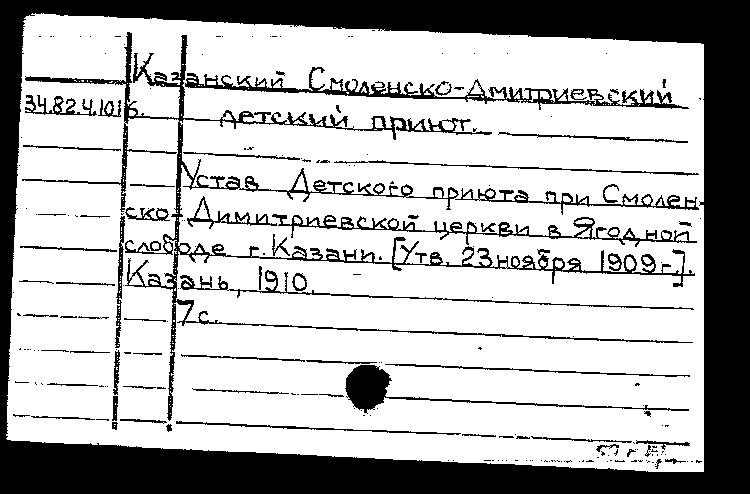 Казанский Смоленско-Дмитриевский
34.82.4.1016.
детский приют.
Устав Детского приюта при Смолен-
ско-Димитриевской церкви в Ягодной
слободе г. Казани. [Утв. 23 ноября 1909 г.].
Казань, 1910.
7 с.